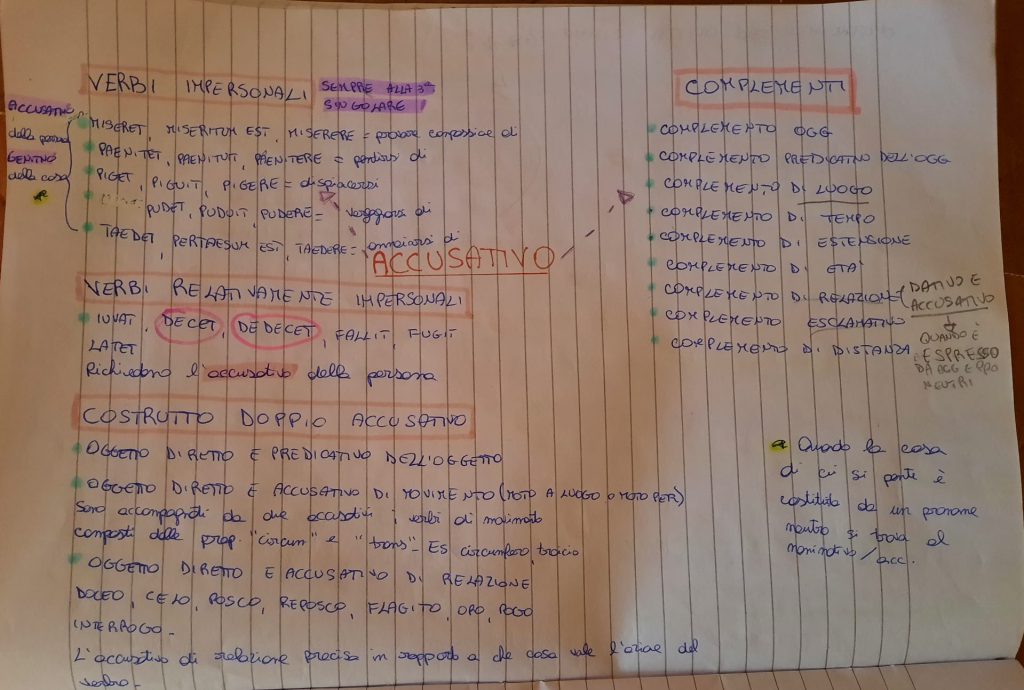 VERBI IMPERSONALI
SEMPRE ALLA 3ª
SINGOLARE
ACCUSATIVO
della persona
GENITIVO
della cosa
MISERET, MISERITUM EST, MISERERE = provare compassione di
PAENITET, PAENITUIT, PAENITERE = pentirsi di
PIGET, PIGUIT, PIGERE = dispiacersi
PUDET, PUDUIT, PUDERE = vergognarsi di
TAEDET, PERTAESUM EST, TAEDERE = annoiarsi di
ACCUSATIVO
VERBI RELATIVAMENTE IMPERSONALI
IUVAT, DECET, DEDECET, FALLIT, FUGIT
LATET
Richiedono l'accusativo della persona
COSTRUTTO DOPPIO ACCUSATIVO
OGGETTO DIRETTO E PREDICATIVO DELL'OGGETTO
OGGETTO DIRETTO E ACCUSATIVO DI MOVIMENTO (MOTO A LUOGO O MOTO PER)
Sono accompagnati da due accusativi i verbi di movimento
composti dalle prep. "circum" e "trans" - Es circumfero, traicio
OGGETTO DIRETTO E ACCUSATIVO DI RELAZIONE
DOCEO, CELO, POSCO, REPOSCO, FLAGITO, ORO, ROGO
INTERROGO -
L'accusativo di relazione precisa in rapporto a che cosa vale l'azione del
verbo -
COMPLEMENTI
COMPLEMENTO OGG
COMPLEMENTO PREDICATIVO DELL'OGG
COMPLEMENTO DI LUOGO
COMPLEMENTO DI TEMPO
COMPLEMENTO DI ESTENSIONE
COMPLEMENTO DI ETÀ
COMPLEMENTO DI RELAZIONE
DATIVO E
ACCUSATIVO
COMPLEMENTO ESCLAMATIVO
COMPLEMENTO DI DISTANZA
QUANDO È
ESPRESSO
DA AGG E PRO
NEUTRI
Quando la cosa
di cui si pente è
costituita da un pronome
neutro si trova al
nominativo / acc.